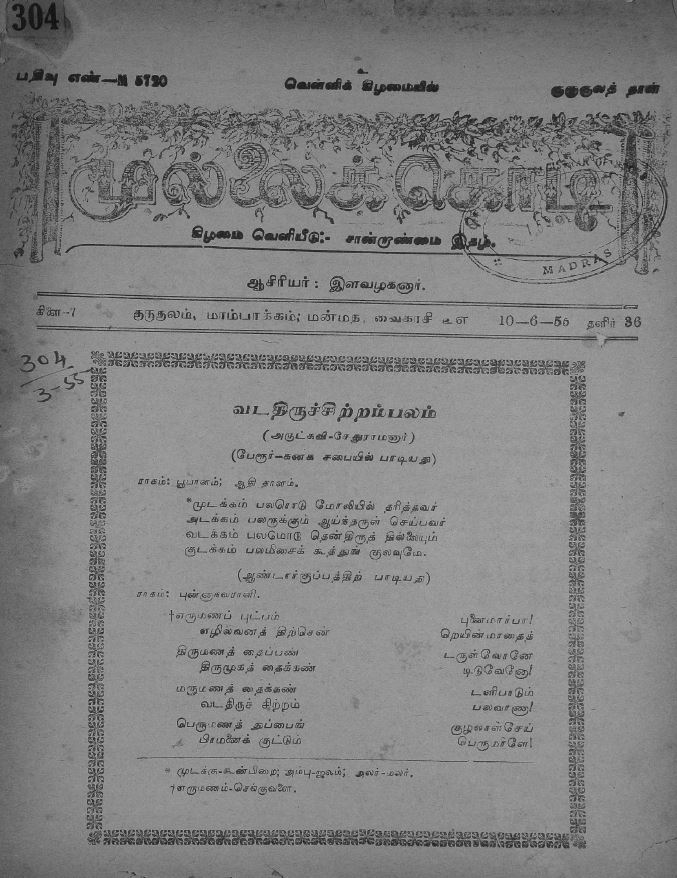 304
பதிவு எண்—M 5720
உ
வெள்ளிக் கிழமையில்
குருகுலத் தான்
முல்லைக் கொடி
கிழமை வெளியீடு:- சான்றாண்மை இதழ்.
MADRAS
ஆசிரியர் : இளவழகனார்.
கிளை-7 குருகுலம், மாம்பாக்கம்; மன்மத, வைகாசி ௨௭ 10—6—55 தளிர் 36
304
3-55
வடதிருச்சிற்றம்பலம்
(அருட்கவி-சேதுராமனார்)
(பேரூர்-கனக சபையில் பாடியது)
ராகம்: பூபாளம்; ஆதி தாளம்.
*முடக்கம் பலரொடு மோலியில் தரித்தவர்
அடக்கம் பலருக்கும் ஆய்ந்தருள் செய்பவர்
வடக்கம் பலமொடு தென்திருத் தில்லையும்
குடக்கம் பலமிசைக் கூத்துங் குலவுமே.
(ஆண்டார்குப்பத்திற் பாடியது)
ராகம்: புன்னாகவராளி.
†எருமணப் புட்பம் புனைமார்பா!
எழில்வனத் திற்சென் றெயின்மாதைத்
திருமணத் தைப்பண் டருள்வோனே
திருமுகத் தைக்கண் டிடுவேனோ!
மருமணத் தைக்கண் டளிபாடும்
வடதிருச் சிற்றம் பலவாணா!
பெருமணத் தப்பைங் குழலாள்சேய்
பிரமனைக் குட்டும் பெருமாளே!
* முடக்கு-கூன்பிறை; அம்பு-ஜலம்; அலர்-மலர்.
†எருமணம்-செங்குவளை.